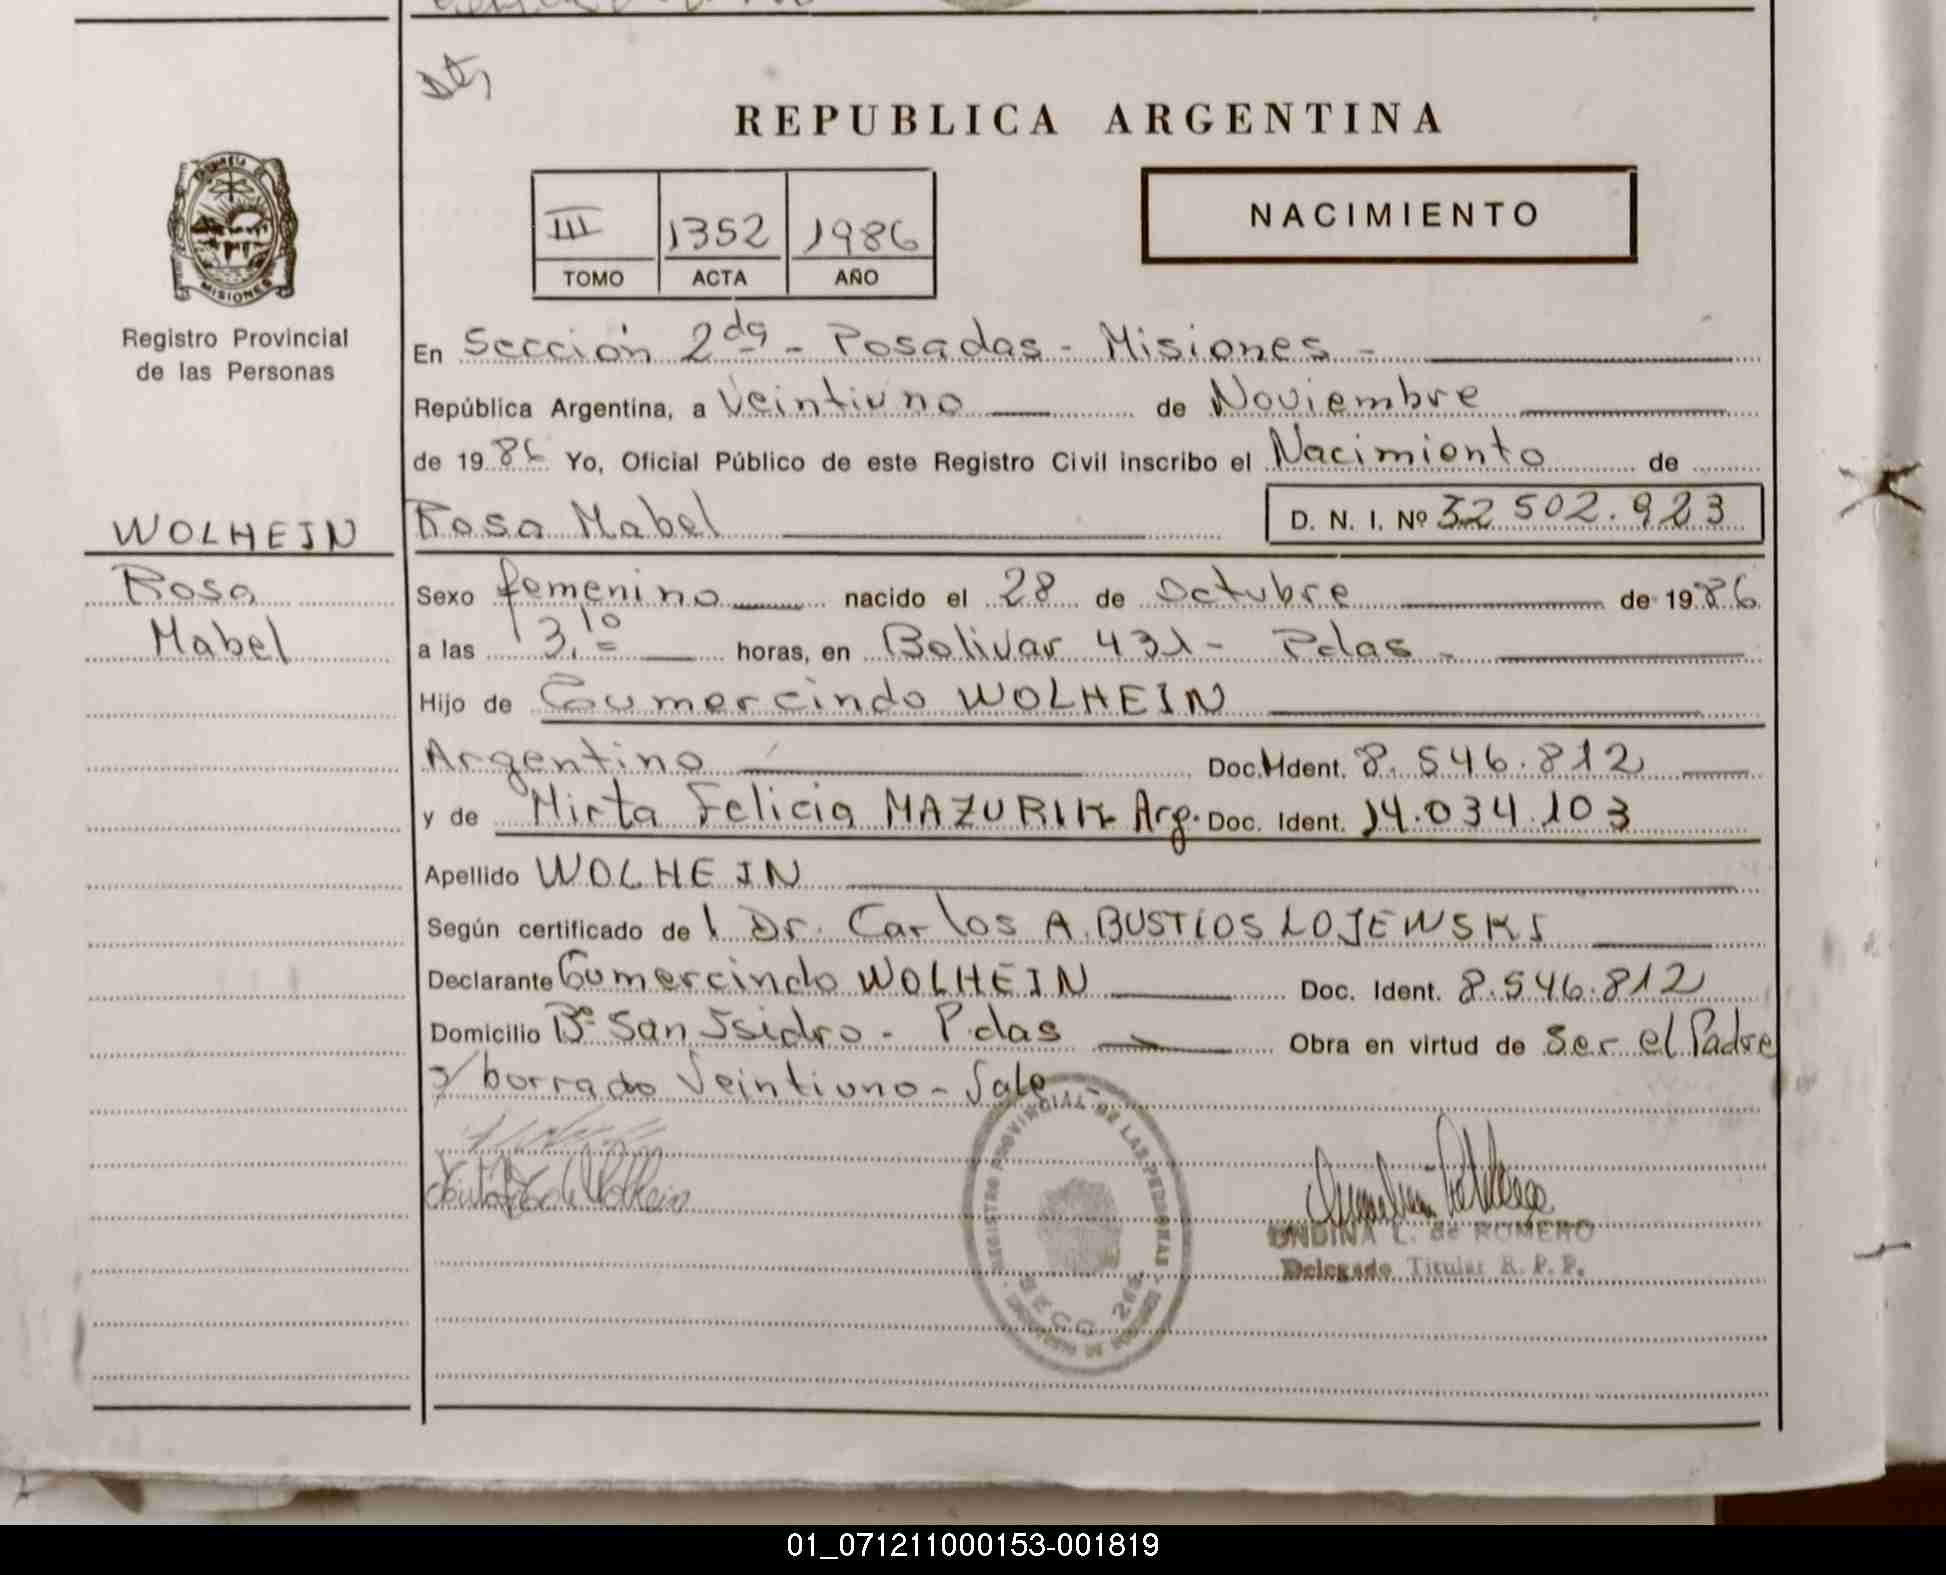 REPUBLICA ARGENTINA
MISIONES
Registro Provincial
de las Personas
III 1352 1986
TOMO ACTA AÑO
NACIMIENTO
En Sección 2da - Posadas - Misiones -
República Argentina, a Veintiuno de Noviembre
de 1986 Yo, Oficial Público de este Registro Civil inscribo el Nacimiento de
WOLHEIN
Rosa
Mabel
Rosa Mabel D. N. I. Nº 32 502.923
Sexo femenino nacido el 28 de Octubre de 1986
a las 13,10 horas, en Bolivar 431 - Pdas -
Hijo de Gumercindo WOLHEIN
Argentino Doc. Ident. 8.546.812
y de Mirta Felicia MAZURIK Arg. Doc. Ident. 14.034.103
Apellido WOLHEIN
Según certificado del Dr. Carlos A. BUSTLOS LOJEWSKI
Declarante Gumercindo WOLHEIN Doc. Ident. 8.546.812
Domicilio Bº San Isidro - Pdas Obra en virtud de Ser el Padre
s/borrado Veintiuno - Sale
REGISTRO PROVINCIAL DE LAS PERSONAS
SECC.
ONDINA L. de ROMERO
Delegado Titular R. P. P.
01_071211000153-001819